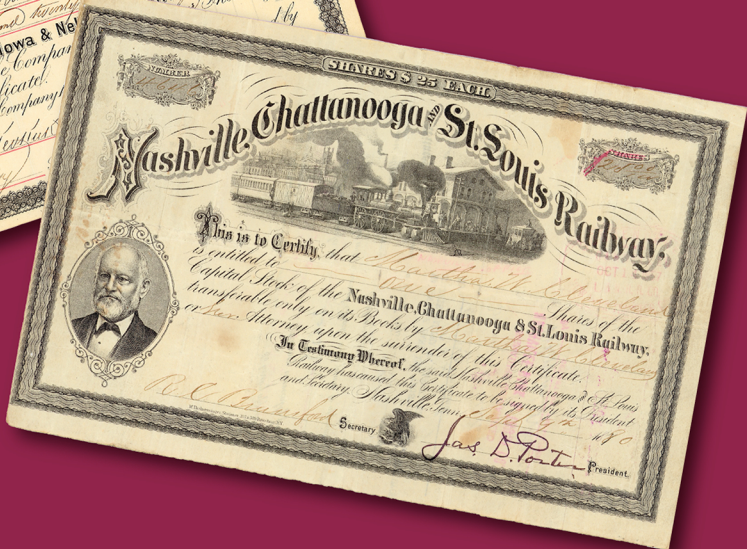 and twenty
by
Iowa & Ne
e Company
licate.
Company
SHARES $ 25 EACH.
NUMBER
SHARES
Nashville, Chattanooga AND St. Louis Railway.
This is to Certify, that Martha W. Cleveland
is entitled to one Shares of the
Capital Stock of the Nashville, Chattanooga & St. Louis Railway,
transferable only on its Books by Martha W. Cleveland
or her Attorney upon the surrender of this Certificate.
In Testimony Whereof, the said Nashville Chattanooga & St. Louis
Railway has caused this Certificate to be signed by its President
and Secretary. Nashville, Tenn. 1880
Secretary
Jas. D. Porter President.